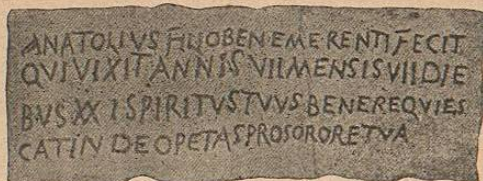 ANATOLIVS FILIO BENEMERENTI FECIT
QVI VIXIT ANNIS VII MENSIS VII DIE
BVS XX ISPIRITVS TVVS BENE REQVIES
CAT IN DEO PETAS PRO SORORE TVA